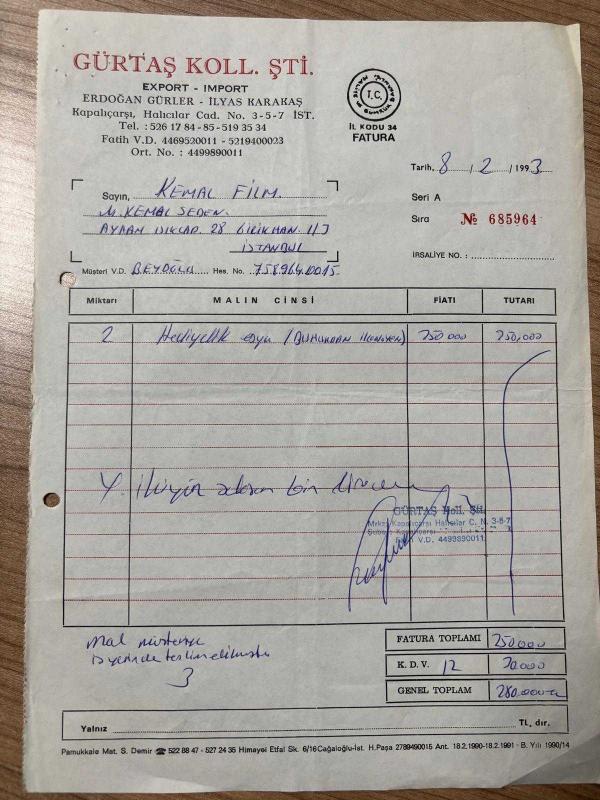 GÜRTAŞ KOLL. ŞTİ.
EXPORT - IMPORT
ERDOĞAN GÜRLER - İLYAS KARAKAŞ
Kapalıçarşı, Halıcılar Cad. No. 3-5-7 İST.
Tel. : 526 17 84 - 85 - 519 35 34
Fatih V.D. 4469520011 - 5219400023
Ort. No. : 4499890011
T.C.
İL KODU 34
FATURA
Tarih, 8 / 2 / 1993
Sayın, KEMAL FİLM.
M. KEMAL SEDEN.
İSTANBUL
Seri A
Sıra № 685964
İRSALİYE NO. :
Müşteri V.D. BEYOĞLU Hes. No. 758.964.0015
Miktarı MALIN CİNSİ FİATI TUTARI
2 Hediyelik eşya 250.000 250.000
Y. İkiyüz seksen bin liradır
GÜRTAŞ Koll. Şti.
Mrkz. Kapalıçarşı Halıcılar C. N. 3-5-7
Fatih V.D. 4499890011
Mal müşteriye
işyerinde teslim edilmiştir
FATURA TOPLAMI 250.000
K. D. V. 12 30.000
GENEL TOPLAM 280.000
Yalnız TL. dır.
Pamukkale Mat. S. Demir ☎ 522 88 47 - 527 24 35 Himayei Etfal Sk. 6/16 Cağaloğlu-İst. H.Paşa 2789490015 Ant. 18.2.1990-18.2.1991 - B. Yılı 1990/14